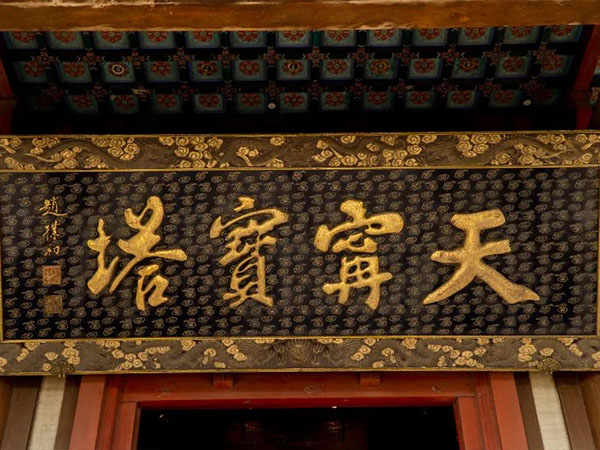 天寧寶塔
趙樸初